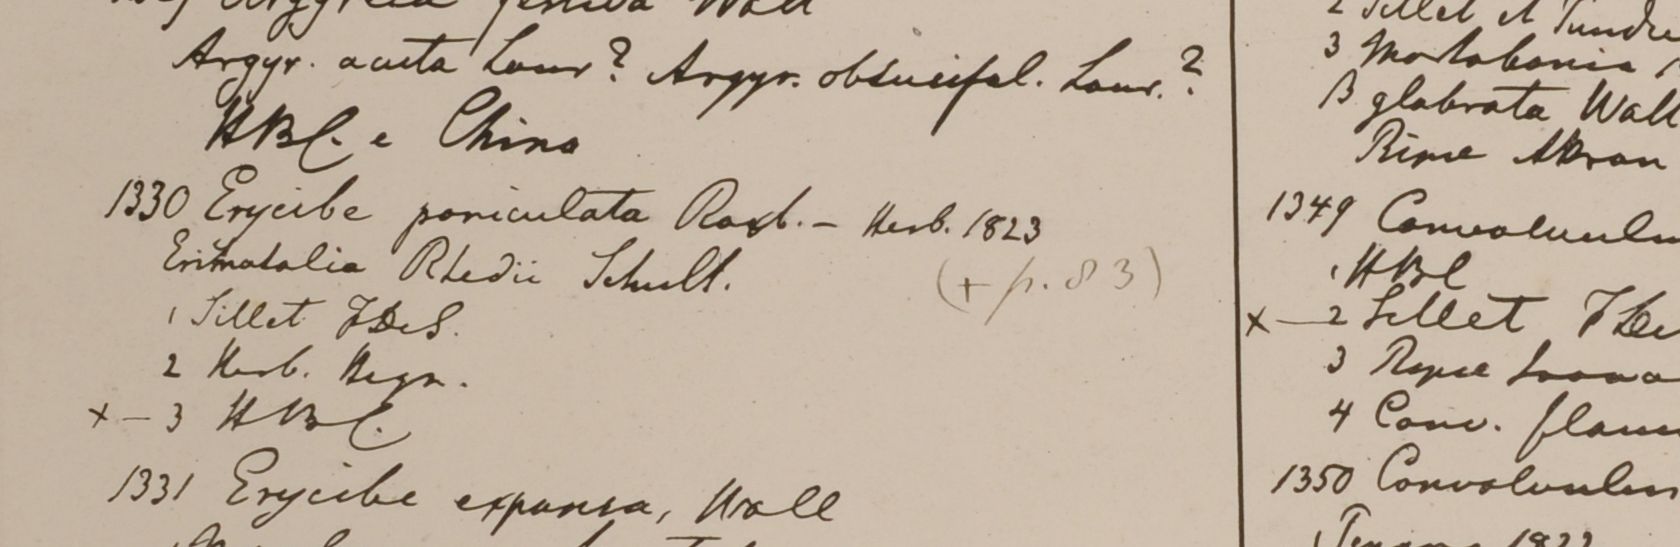 Argyreia festiva Wall
Argyr. acuta Lour? Argyr. obtusifol. Lour.?
HBC. e China
1330 Erycibe paniculata Roxb. – Herb. 1823
Erimatalia Rhedii Schult.
(+ p. 83)
1 Sillet FDeS.
2 Herb. Heyn.
x – 3 HBC.
1331 Erycibe expansa, Wall
2 Sillet et
3 Martabania
β glabrata Wall
Ripae
1349 Convolvulu
1 HBC
x – 2 Sillet
3 Ripae
4 Conv. flavu
1350 Convolvulus